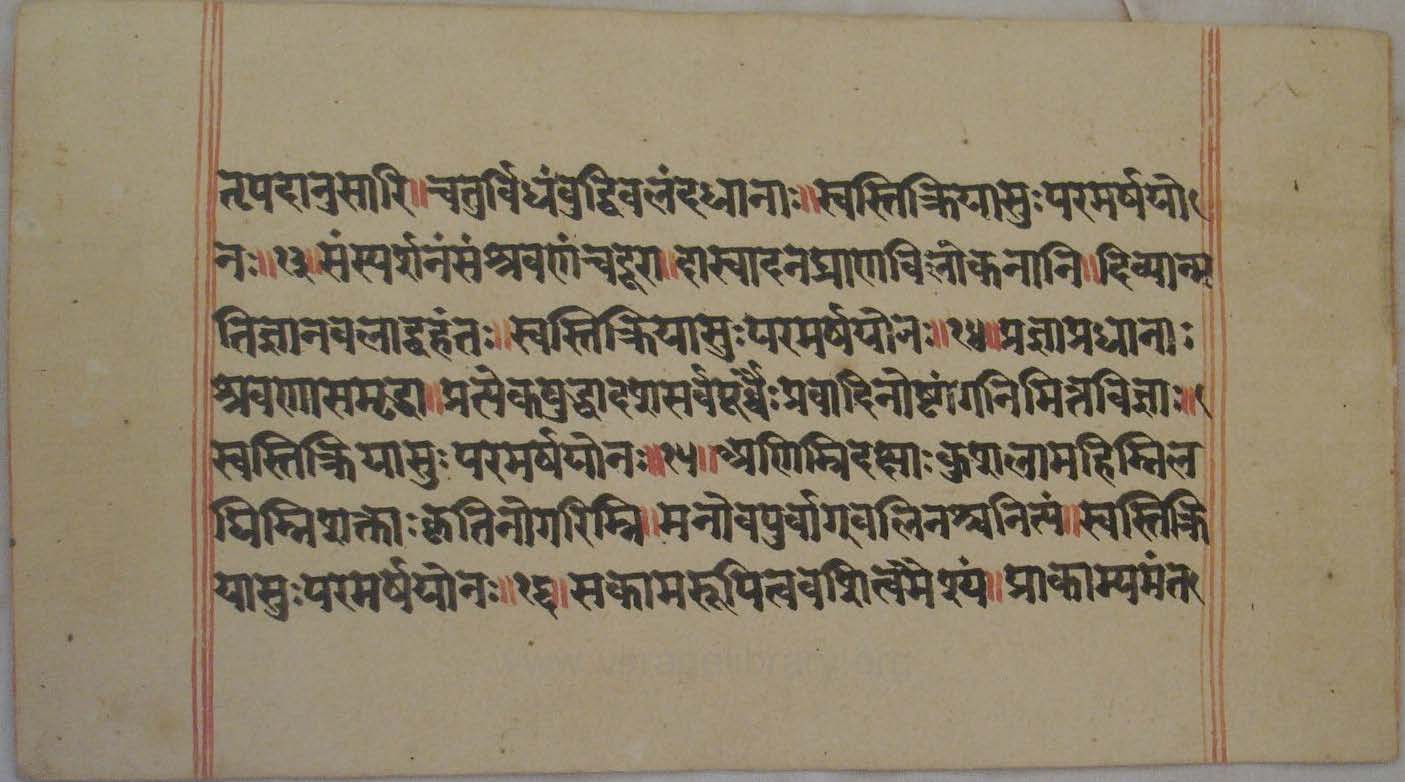 तृपदानुसारि॥चतुर्विधंवुद्धिवलंदधानाः॥स्वस्तिक्रियासुःपरमर्षयो
नः॥१३॥संस्पर्शनंसंश्रवणंचदूरा॥दास्वादनघ्राणविलोकनानि॥दिव्यान्म
तिज्ञानवलाद्वहंतः॥स्वस्तिक्रियासुःपरमर्षयोनः॥१४॥प्रज्ञाप्रधानाः
श्रवणासमृद्धा॥प्रत्येकवुद्धादशसर्वपूर्वैःप्रवादिनोष्टांगनिमित्तविज्ञाः॥
स्वस्तिक्रियासुःपरमर्षयोनः॥१५॥अणिम्निदक्षाःकुशलामहिम्निल
घिम्निशक्ताःकृतिनोगरिम्नि॥मनोवपुर्वाग्वलिनश्चनित्यं॥स्वस्तिक्रि
यासुःपरमर्षयोनः॥१६॥सकामरूपित्ववशित्वमैश्यं॥प्राकाम्यमंत
www.veragelibrary.org